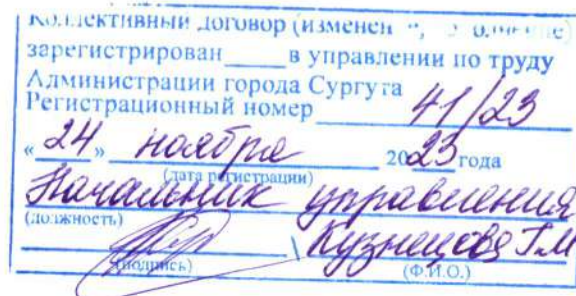 Коллективный договор (изменение, дополнение)
зарегистрирован_____ в управлении по труду
Администрации города Сургута
Регистрационный номер 41/23
«24» ноября 2023 года
(дата регистрации)
Начальник управления
(должность)
Кузнецова Т.М
(подпись) (Ф.И.О.)